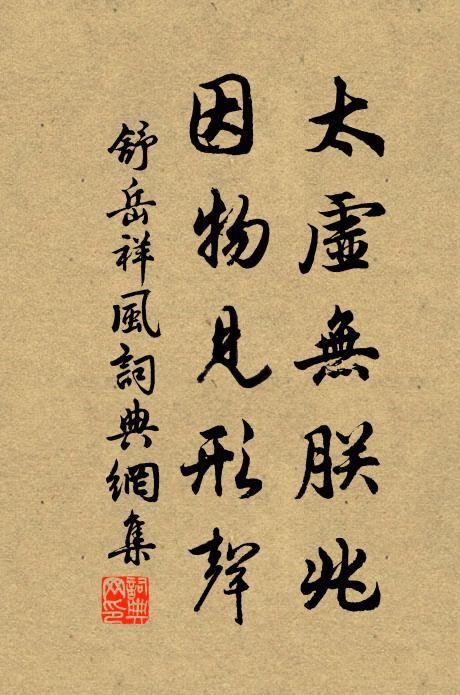 太虛無朕兆
因物見形聲
舒岳祥風詞典網集
詞典网印